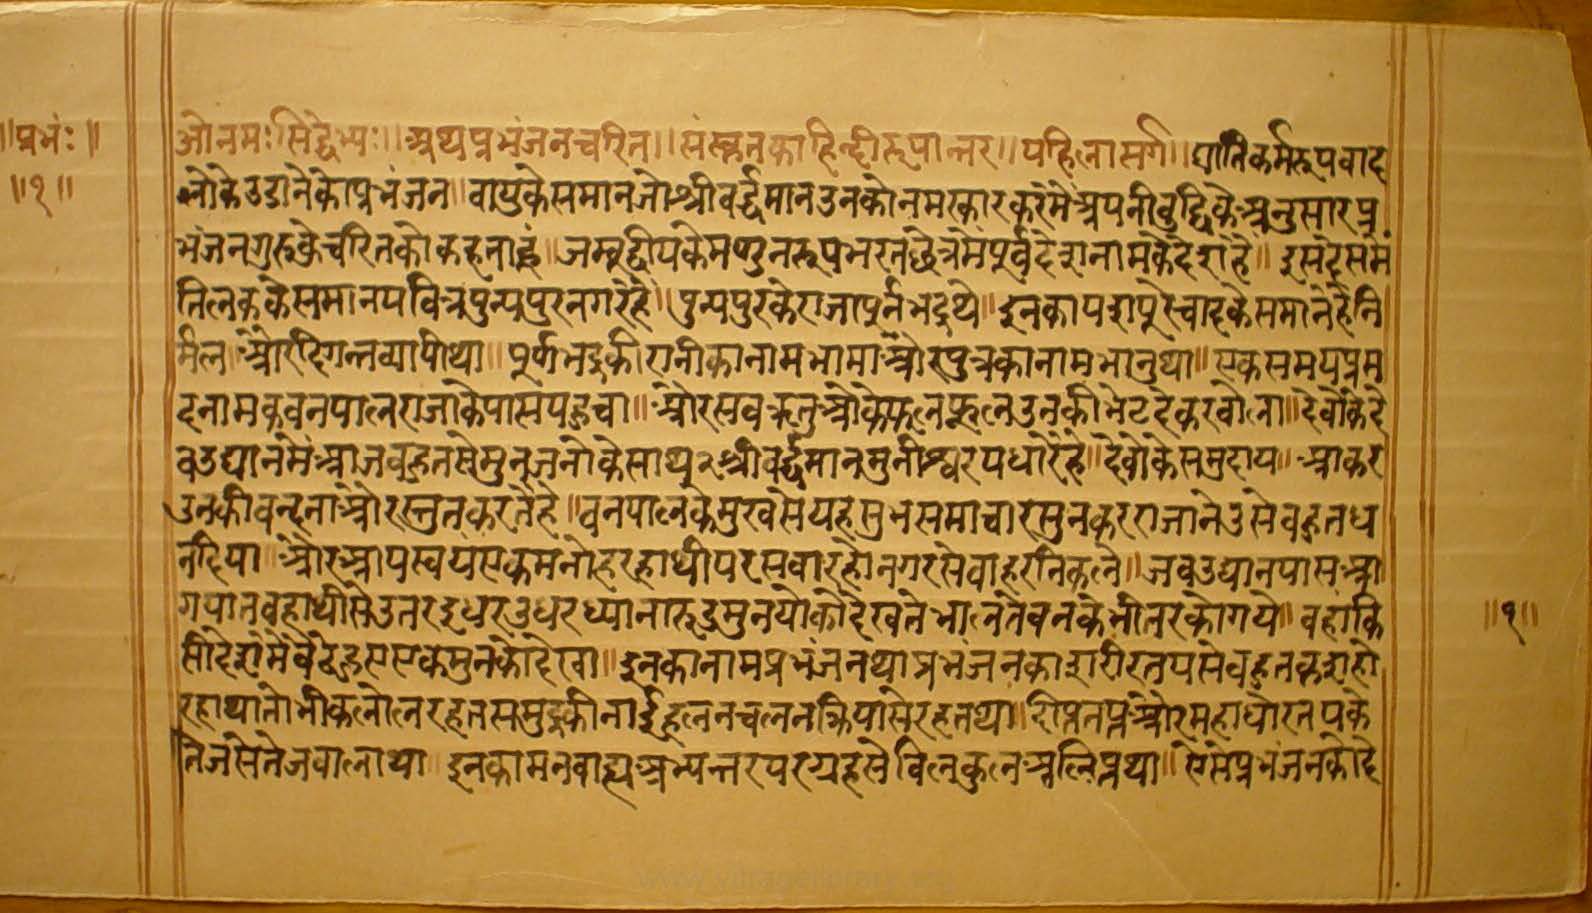 ॥प्रभंः॥
॥१॥
ओंनमःसिद्धेभ्यः॥अथप्रभंजनचरित॥संस्कृतकाहिन्दीरूपान्तर॥पहिलासर्ग॥घातिकर्मरूपवाद
लोकेउडानेकोप्रभंजन॥वायुकेसमानजोश्रीवर्द्धमानउनकोनमस्कारकरमैंअपनीबुद्धिकेअनुसारप्र
भंजनगुरुकेचरितकोकहताहूं॥जम्बूद्वीपकेमण्डनरूपभरतछेत्रमेंपूर्वदेशनामकदेशहै॥इसदेसमें
तिलककेसमानपवित्रपुन्यपुरनगरहै॥पुन्यपुरकेराजापूर्नभद्रथे॥इनकायशपुरेचादकेसमानहैनि
र्मल॥औरदिगन्तव्यापीथा॥पूर्णभद्रकीरानीकानामभामाऔरपुत्रकानामभानुथा॥एकसमयप्रम
दनामकवनपालराजाकेपासपहुचा॥औरसवऋतुओकेफलफूलउनकीभेटदेकरवोला॥देवोंकेदे
वउद्यानमेंआजबहुतसेमुनुजनोकेसाथ२श्रीवर्द्धमानमुनीश्वरपधारेहैं॥देवोकेसमुदाय॥आकर
उनकीवन्दनाऔरस्तुतकरतेहै॥वनपालकेमुखसेयहसुभसमाचारसुनकरराजानेउसेबहुतध
नदिया॥औरआपस्वयंएकमनोहरहाथीपरसवारहोनगरसेवाहरनिकले॥जवउद्यानपासआ
गयातवहाथीसेउतरइधरउधरध्यानारूढमुनयोकोदेखतेभालतेवनकेभीतरकोगये॥वहांकि
सीदेशमेंवैठेहुएएकमुनकोदेखा॥इनकानामप्रभंजनथाप्रभंजनकाशरीरतपसेबहुतकृशहो
रहाथातोभीकलोलरहतसमुद्रकीनाईहलनचलनक्रियासेरहतथा॥दीप्ततप्तऔरमहाघोरतपके
तेजसेतेजवालाथा॥इनकामनवाह्यअभ्यन्तरपरग्रहसेविलकुलअलिप्तथा॥ऐसेप्रभंजनकोदे
॥१॥